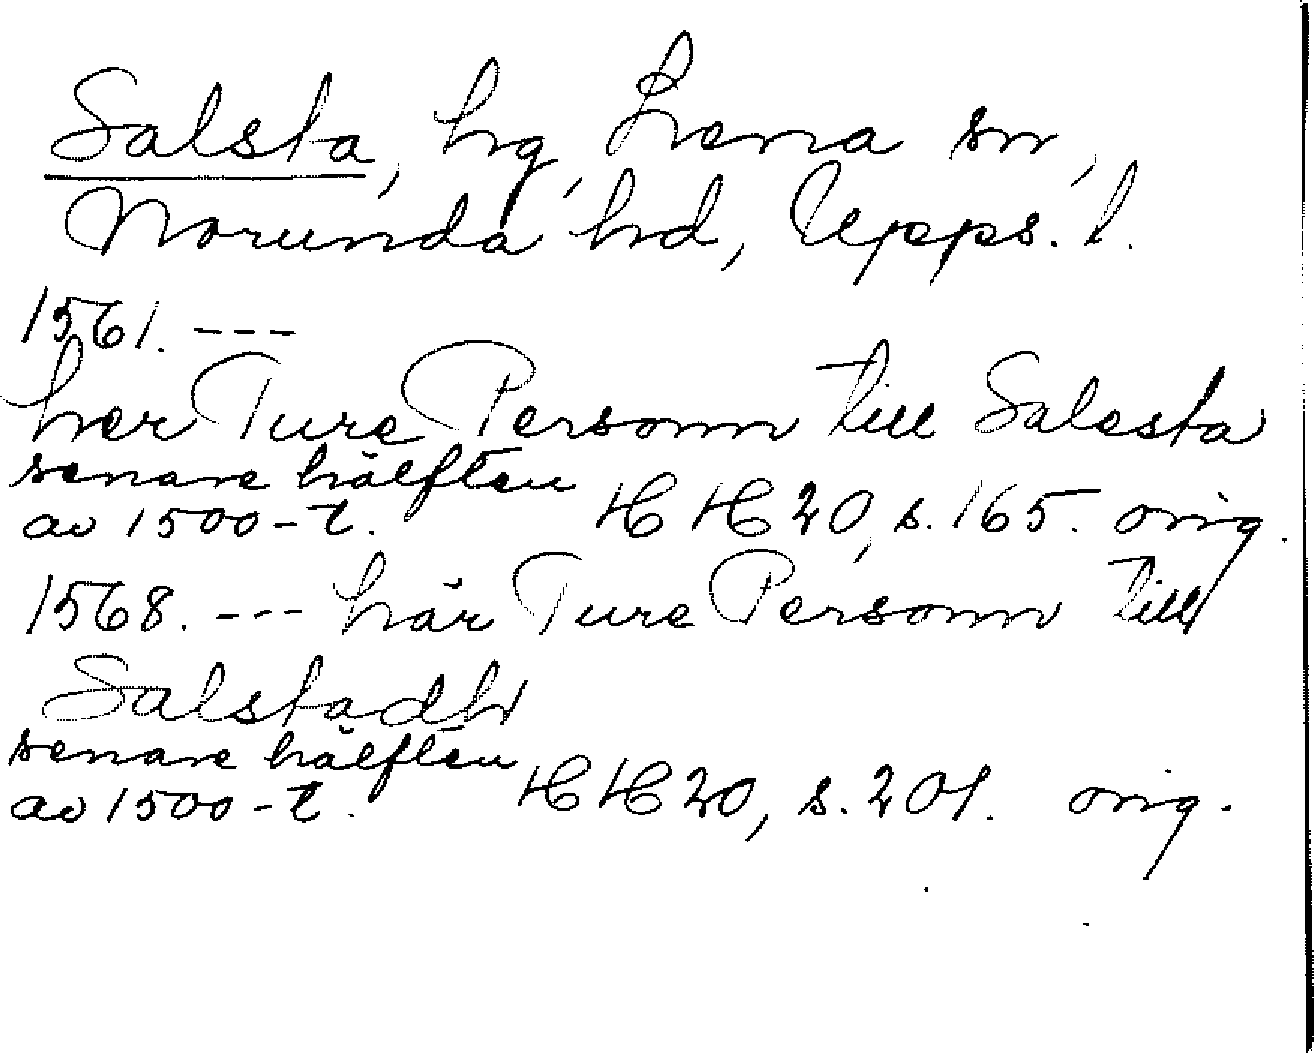 Salsta, hg, Lena sn,
Norunda hd, Upps. l.
1561. ---
her Ture Personn till Salesta
senare hälften
av 1500-t. HH 20, s. 165. orig.
1568. --- här Ture Personn till
Salstadh
senare hälften
av 1500-t. HH 20, s. 201. orig.